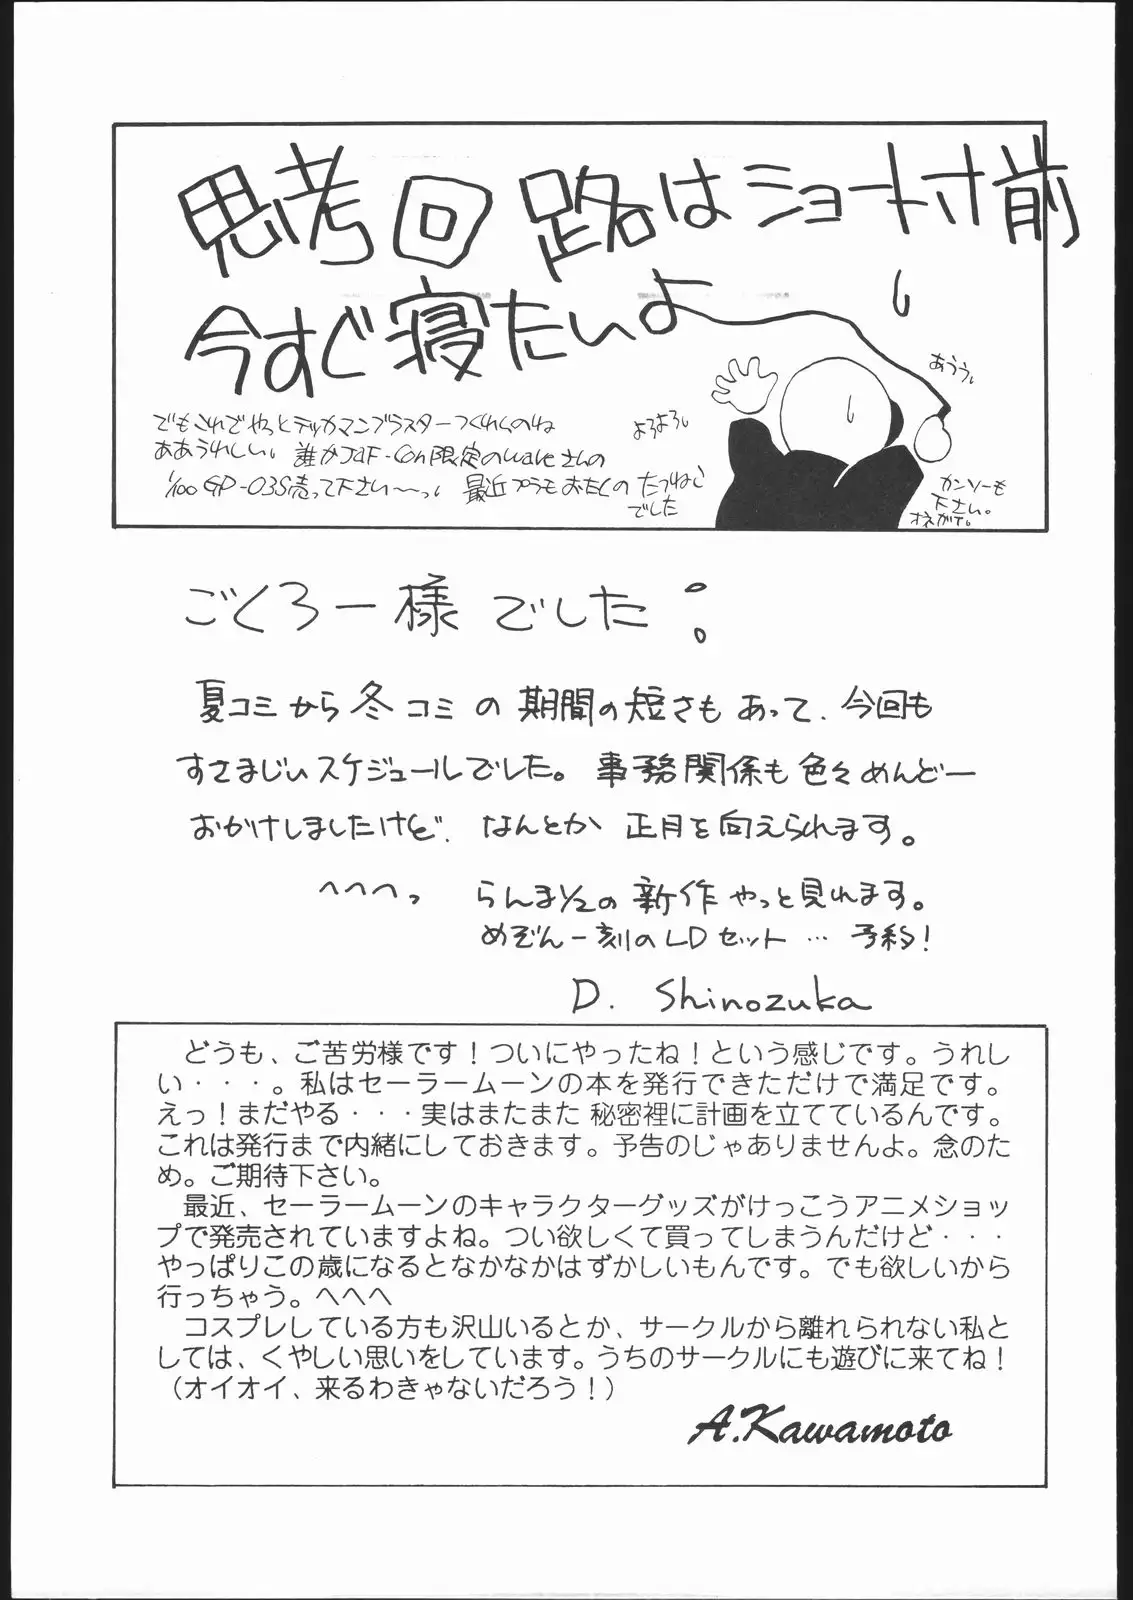 思考回路はショート寸前
今すぐ寝たいよ
あうう。
よろよろ。
でもこれでやっとテッカマンブラスターつくれるのね
ああうれしい。誰かJAF-CON限定のwaveさんの
1/100 GP-03S売って下さい〜っ。最近プラモおたくの
でした
カンソーも
下さい。
オネガイ。
ごくろー様でした。
夏コミから冬コミの期間の短さもあって、今回も
すさまじいスケジュールでした。事務関係も色々めんどー
おかけしましたけど、なんとか正月を向えられます。
へへへっ らんま1/2の新作やっと見れます。
めぞん一刻のLDセット…予約!
D. Shinozuka
どうも、ご苦労様です!ついにやったね!という感じです。うれし
い・・・。私はセーラームーンの本を発行できただけで満足です。
えっ!まだやる・・・実はまたまた秘密裡に計画を立てているんです。
これは発行まで内緒にしておきます。予告のじゃありませんよ。念のた
め。ご期待下さい。
最近、セーラームーンのキャラクターグッズがけっこうアニメショッ
プで発売されていますよね。つい欲しくて買ってしまうんだけど・・・
やっぱりこの歳になるとなかなかはずかしいもんです。でも欲しいから
行っちゃう。へへへ
コスプレしている方も沢山いるとか、サークルから離れられない私と
しては、くやしい思いをしています。うちのサークルにも遊びに来てね!
(オイオイ、来るわきゃないだろう!)
A.Kawamoto